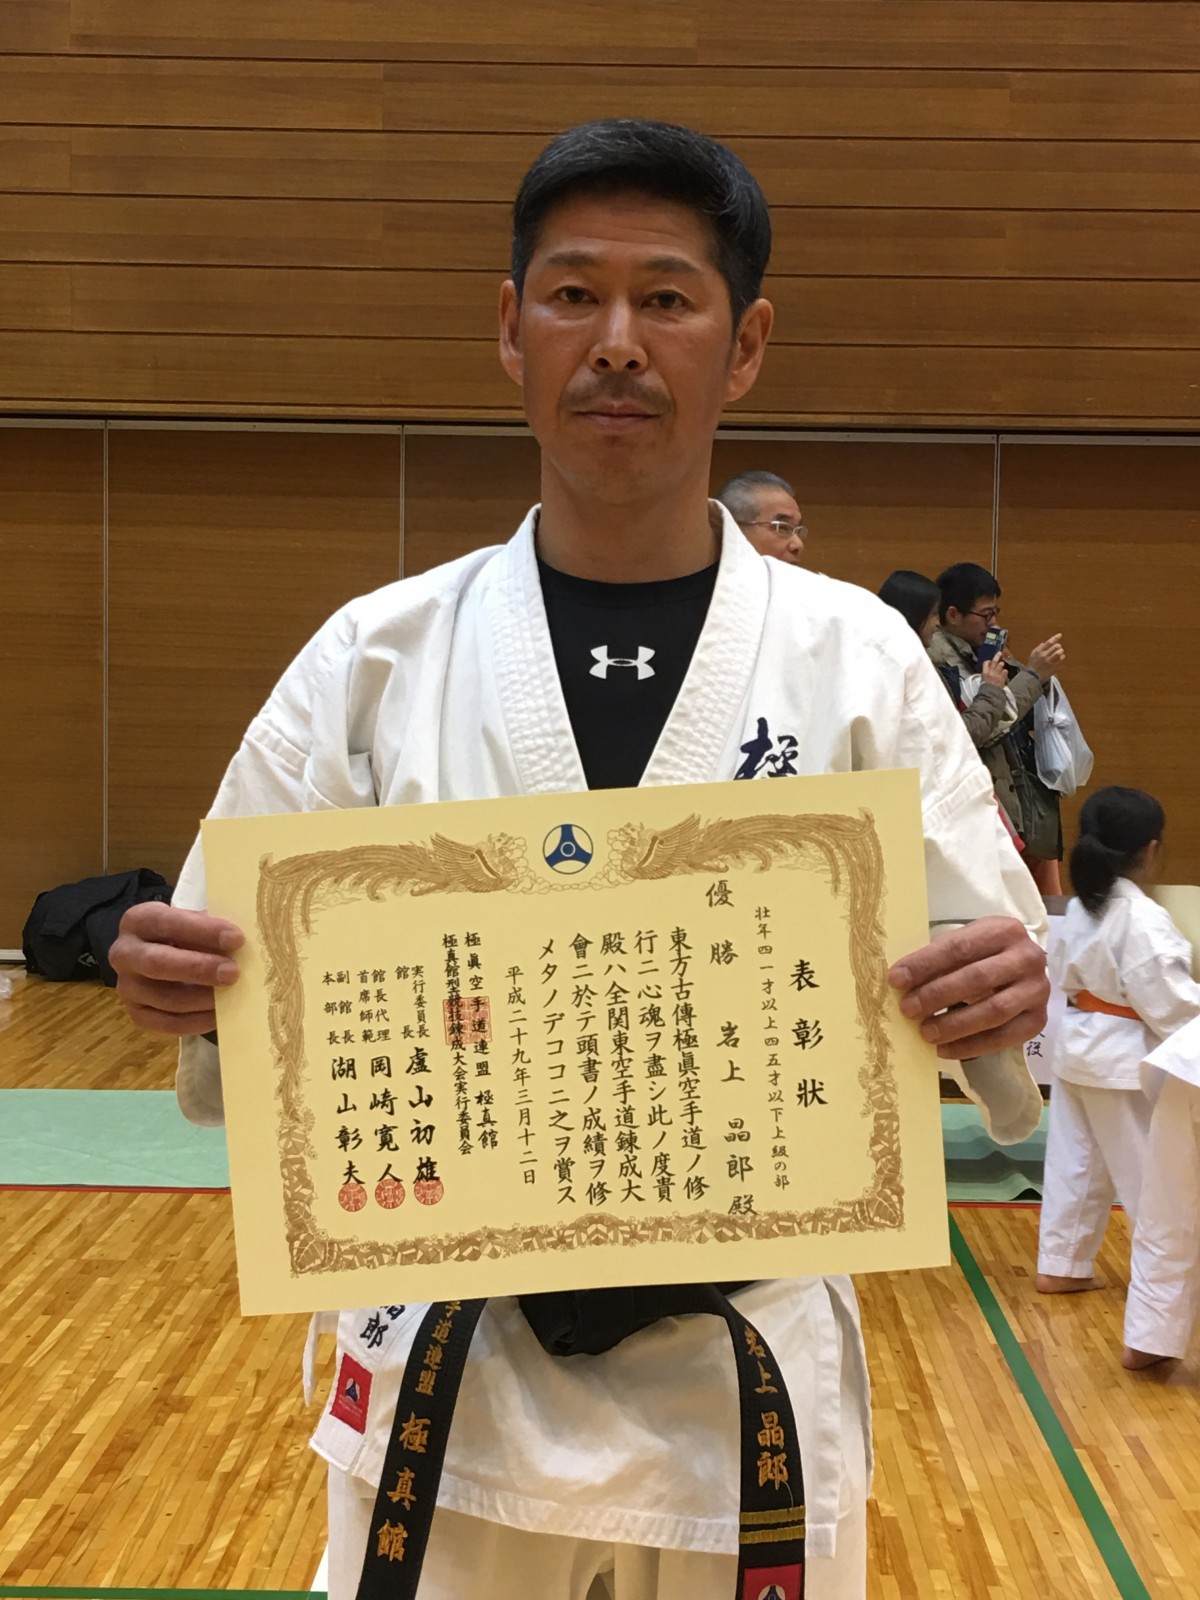 表彰狀
壮年四一才以上四五才以下上級の部
優勝 岩上 晶郎 殿
東方古傳極眞空手道ノ修
行ニ心魂ヲ盡シ此ノ度貴
殿ハ全関東空手道錬成大
會ニ於テ頭書ノ成績ヲ修
メタノデココニ之ヲ賞ス
平成二十九年三月十二日
極眞空手道連盟 極真館
極真館型競技錬成大会実行委員会
実行委員長
館長 盧山初雄
館長代理
首席師範 岡崎寛人
副館長
本部長 湖山彰夫
極
手道連盟 極真館
岩上 晶郎
郎
役